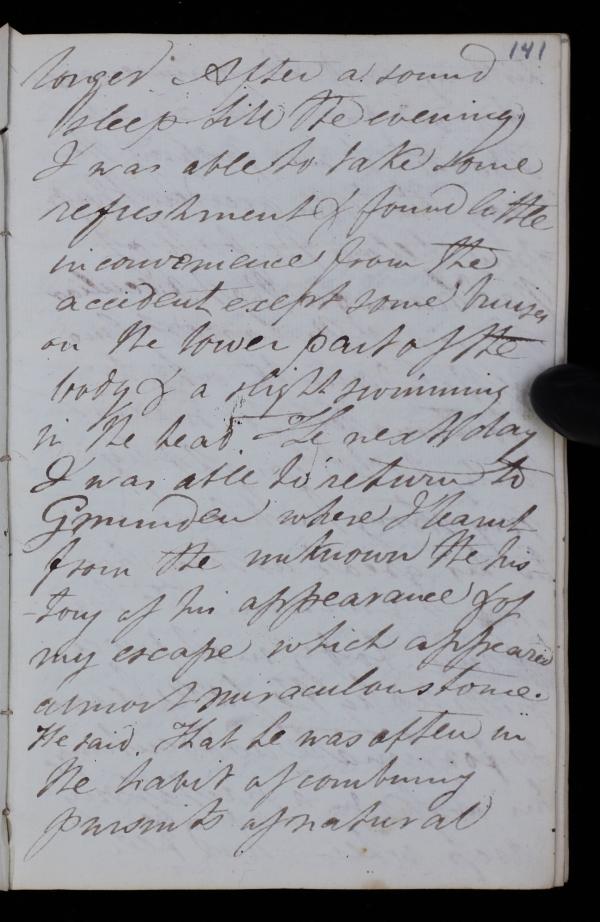 141
longer. After a sound
sleep till the evening,
I was able to take some
refreshment & found little
inconvenience from the
accident except some bruises
on the lower part of the
body & a slight swimming
in the head. The next day
I was able to return to
Gmunden where I learnt
from the unknown the his
-tory of his appearance & of
my escape which appeared
almost miraculous to me.
He said. That he was often in
the habit of combining
pursuits of natural